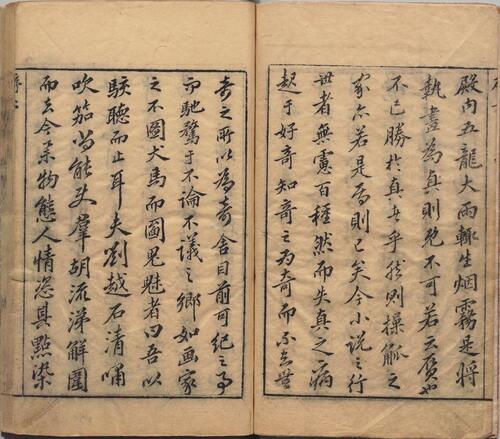 殿内五龍大雨輒生烟霧是將
執畫為真則既不可若云贋也
不已勝於真者乎然則操觚之
家亦若是焉則已矣今小説之行
世者無慮百種然而失真之病
起于好奇知奇之為奇而不知無
奇之所以為奇舍目前可紀之事
而馳騖于不論不議之鄉如画家
之不圖犬馬而圖鬼魅者曰吾以
駭聽而止耳夫劉越石清嘯
吹笳尚能使羣胡流涕解圍
而去今舉物態人情恣其點染